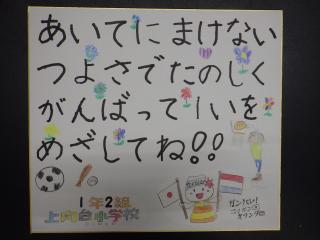 あいてにまけない
つよさでたのしく
がんばって1いを
めざしてね!!
1年2組
上向台小学校
ガンバレ!
ニッポン
オランダ